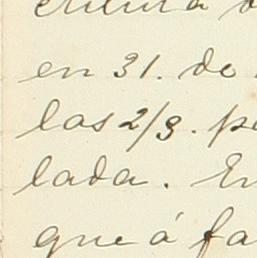 en 31. de
las 2/3. pe
lada. En
que á fa